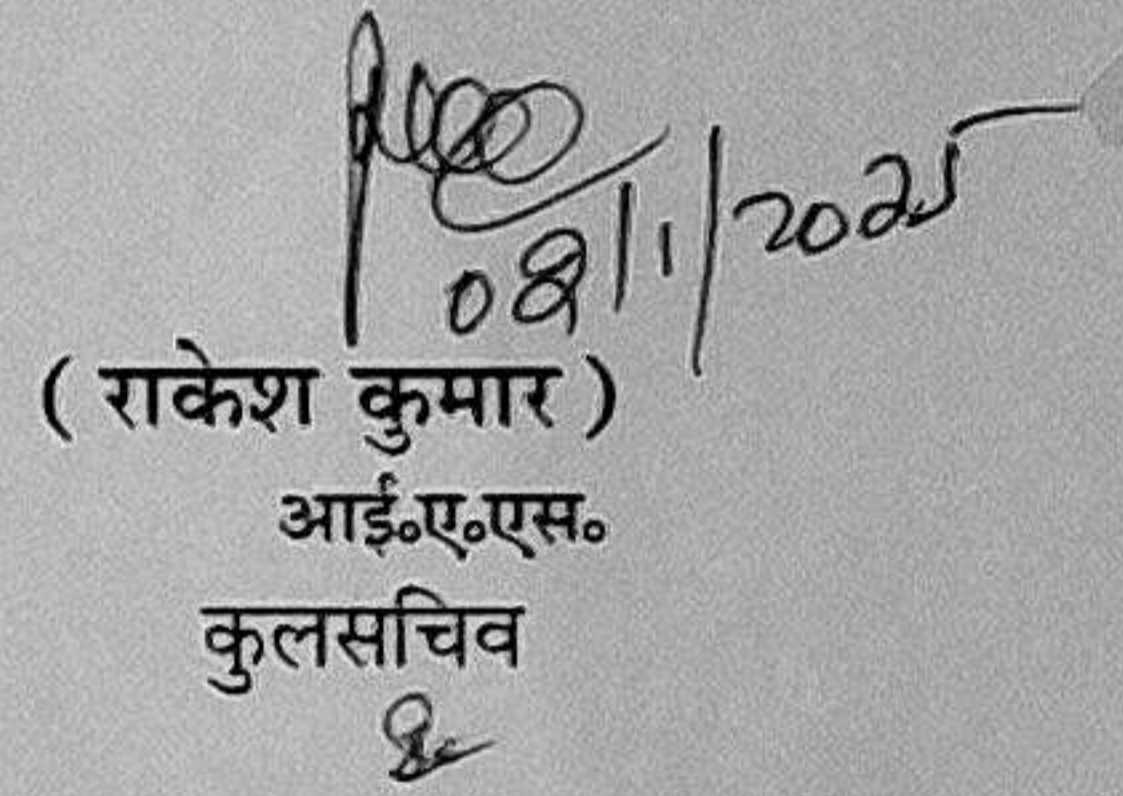 08/1/2025
( राकेश कुमार )
आई०ए०एस०
कुलसचिव